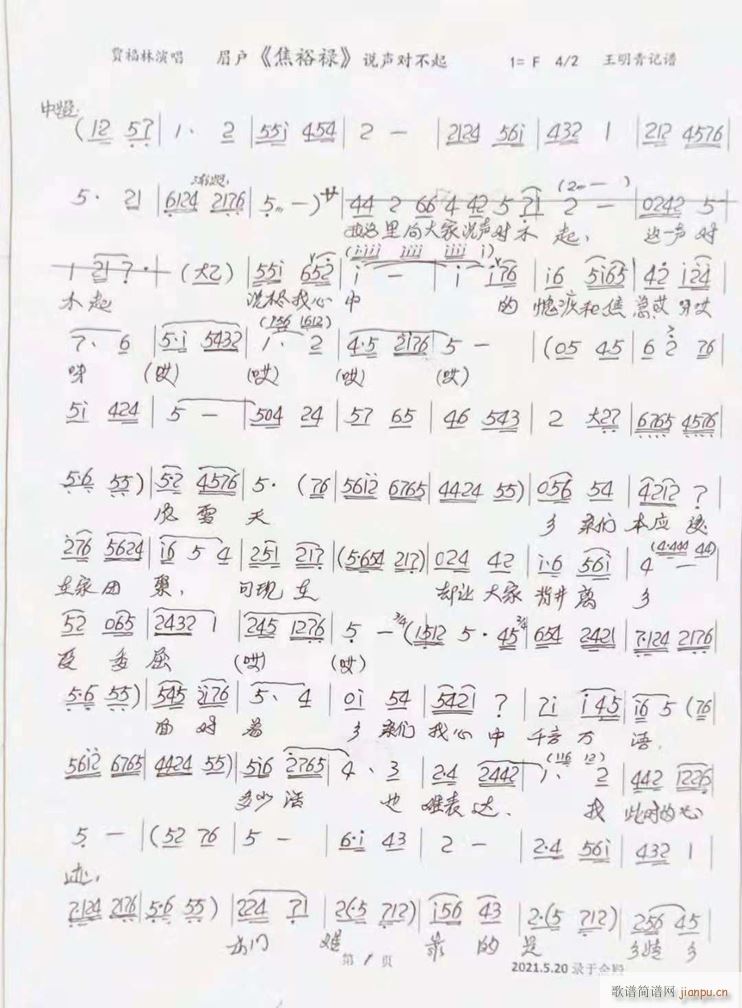 贾福林演唱 眉户《焦裕禄》说声对不起 1= F 4/2 王明青记谱
(12 57 | 1· 2 | 55i 454 | 2 — | 2124 56i | 432 1 | 212 4576
5· 21 | 6124 2176 | 5 — ) 廿 44 2 66 4 42 5 71 2 — 0242 5
(2 — )
这里向大家说声对不起, 这一声对
1 217· (大乙) | 55i 652 | i — | i i76 | i6 5i65 | 42 i24
(iiii iiii iiii i)
不起 我心中 的愧疚和焦急哎 呀哎
7· 6 | 5·i 5432 | 1· 2 | 4·5 2176 | 5 — | (05 45 | 6 2 76
(156 1612)
呀 (哎) (哎) (哎) (哎)
5i 424 | 5 — | 504 24 | 57 65 | 46 543 | 2 大27 | 6765 4576
5·6 55) | 52 4576 | 5· (76 | 56i2 6765 | 4424 55) | 056 54 | 4212 ?
风雪天 乡亲们本应该
276 5624 | i6 5 4 | 251 217 | (5·654 217) | 024 42 | i·6 56i | 4 —
(4·444 44)
在家团聚, 可现在 却让大家背井离乡
52 065 | 2432 1 | 245 1276 | 5 — 3/4 (1512 5· 45 2/4 | 654 2421 | 7·124 2176
受委屈 (哎) (哎)
5·6 55) | 545 i76 | 5· 4 | 0i 54 | 542i ? | 7i i45 | i6 5 (76
面对着乡亲们我心中千言万语,
56i2 6765 | 4424 55) | 5i6 2765 | 4· 3 | 2·4 2442 | 1· 2 | 442 1226
(116 12)
多少话也难表达. 我此时的心
5 — | (52 76 | 5 — | 6·i 43 | 2 — | 2·4 56i | 432 1
迹,
7·124 2176 | 5·6 55) | 224 71 | 2(5 712) | i56 43 | 2·(5 712) | 256 45
出门难 亲的是 乡情乡
第 1 页 2021.5.20 录于
歌谱简谱网 jianpu.cn